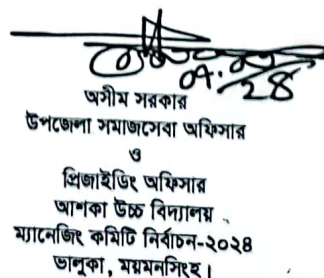 অসীম সরকার
উপজেলা সমাজসেবা অফিসার
ও
প্রিজাইডিং অফিসার
আশকা উচ্চ বিদ্যালয়
ম্যানেজিং কমিটি নির্বাচন-২০২৪
ভালুকা, ময়মনসিংহ।